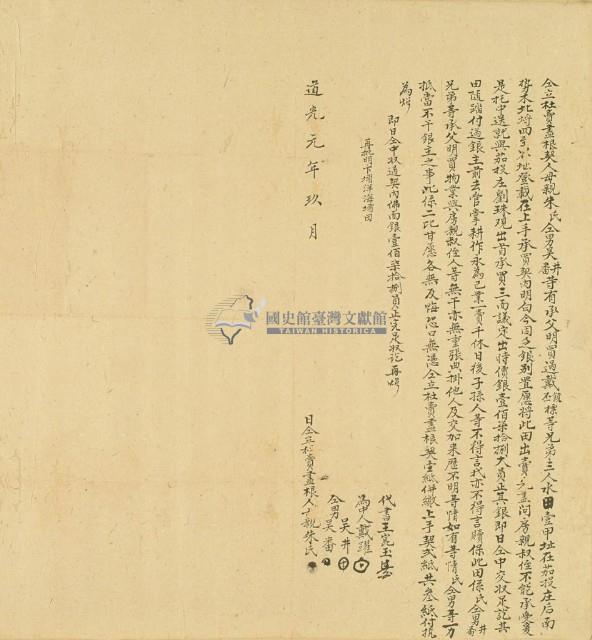 仝立杜賣盡根契人母親朱氏仝男吳井番等有承父明買過戴標等兄弟三人水田壹甲址在茄投庄后南
勢禾北埒四至界址登載在上手承買契內明白今因乏銀別置愿將此田出賣先盡問房親叔侄不能承受爰
是托中送就與茄投庄劉珠現出首承買三面議定出時價銀壹佰柒拾捌大員正其銀即日仝中交收足訖其
田隨踏付過銀主前去管掌耕作永為己業一賣千休日後子孫人等不得言找亦不得言贖保此田係氏仝男井番
兄弟等承父明買物業與房親叔侄人等無干亦無重張典掛他人及交加來歷不明等情如有等情氏仝男等一力
抵當不干銀主之事此係二比甘愿各無反悔恐口無憑仝立杜賣盡根契壹紙併繳上手契貳紙共叁紙付執
為炤
即日仝中收過契內佛面銀壹佰柒拾捌員正完足收訖再炤
再批明下埔洋海埔田
道光元年玖月
日仝立杜賣盡根人母親朱氏
仝男吳番
吳井
為中人戴
代書王
國史館臺灣文獻館
TAIWAN HISTORICA